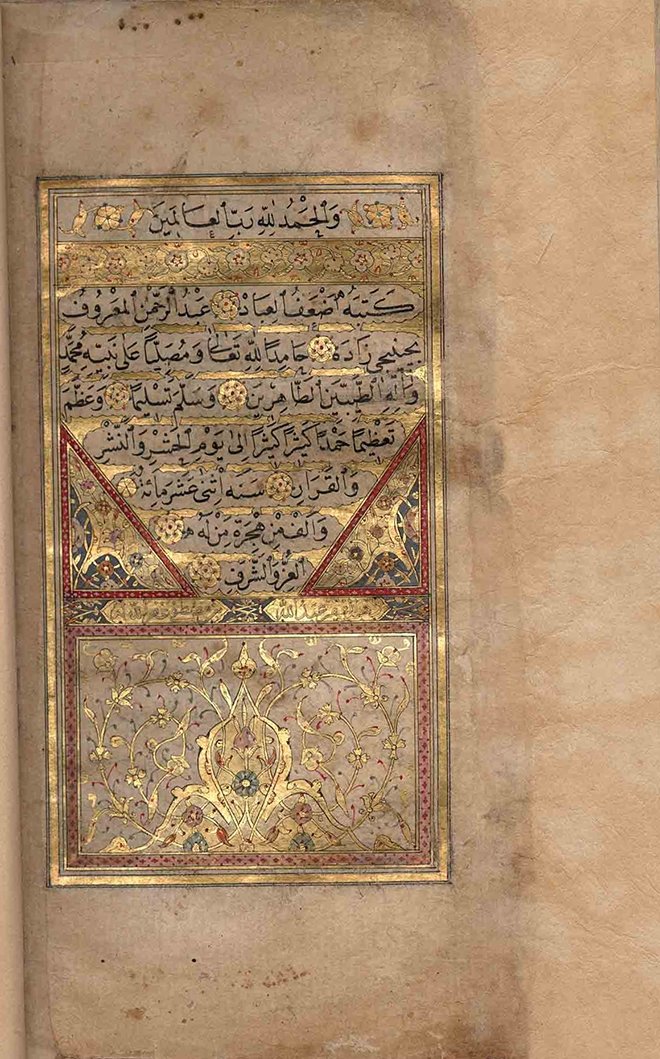 وَالْحَمْدُ لِلّٰهِ رَبِّ الْعَالَمِينَ
كَتَبَهُ اَضْعَفُ الْعِبَادِ عَبْدُ الرَّحْمٰنِ الْمَعْرُوف
زَادَه حَامِدًا لِلّٰهِ تَعَالٰى وَمُصَلِّيًا عَلٰى نَبِيِّهِ مُحَمَّدٍ
وَاٰلِهِ الطَّيِّبِينَ الطَّاهِرِينَ وَسَلَّمَ تَسْلِيمًا وَعَظَّمَ
تَعْظِيمًا حَمْدًا كَثِيرًا كَثِيرًا اِلٰى يَوْمِ الْحَشْرِ وَالنَّشْرِ
وَالْقَرَارِ سَنَه اثْنٰى عَشَرَ مِائَة
وَاَلْف مِنْ هِجْرَةِ مَنْ لَهُ
الْعِزُّ وَالشَّرَفُ